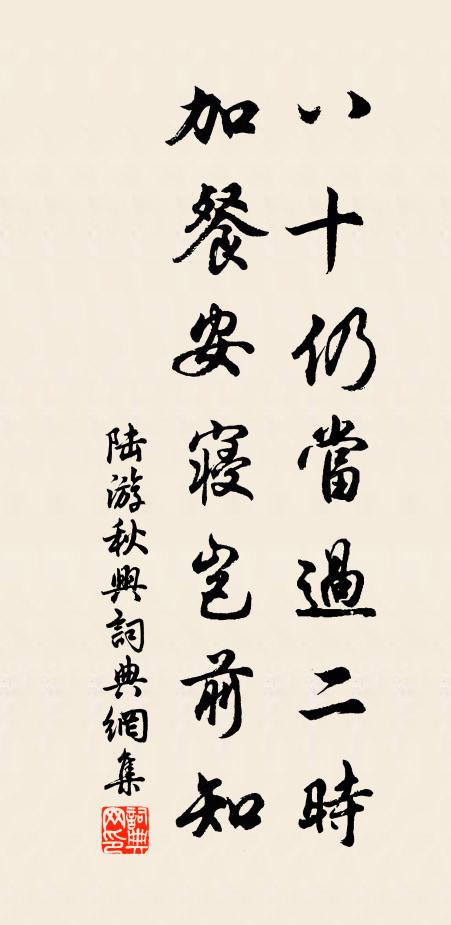 八十仍當過二時
加餐安寢豈前知
陆游秋興詞典網集
詞典網印